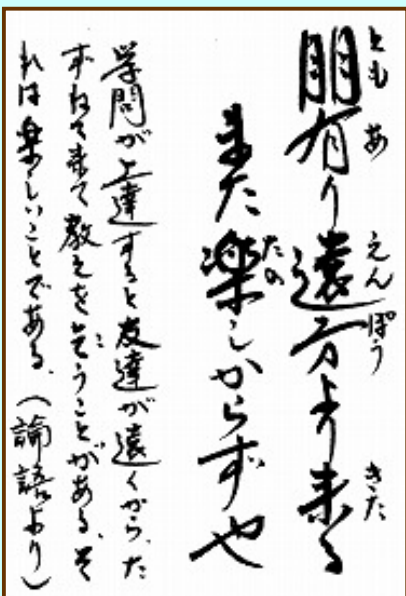 朋有り遠方より来る
とも あ えんぽう きた
また楽しからずや
たの
学問が上達すると友達が遠くから、た
ずねて来て教えを乞うことがある、そ
れは楽しいことである、(論語より)